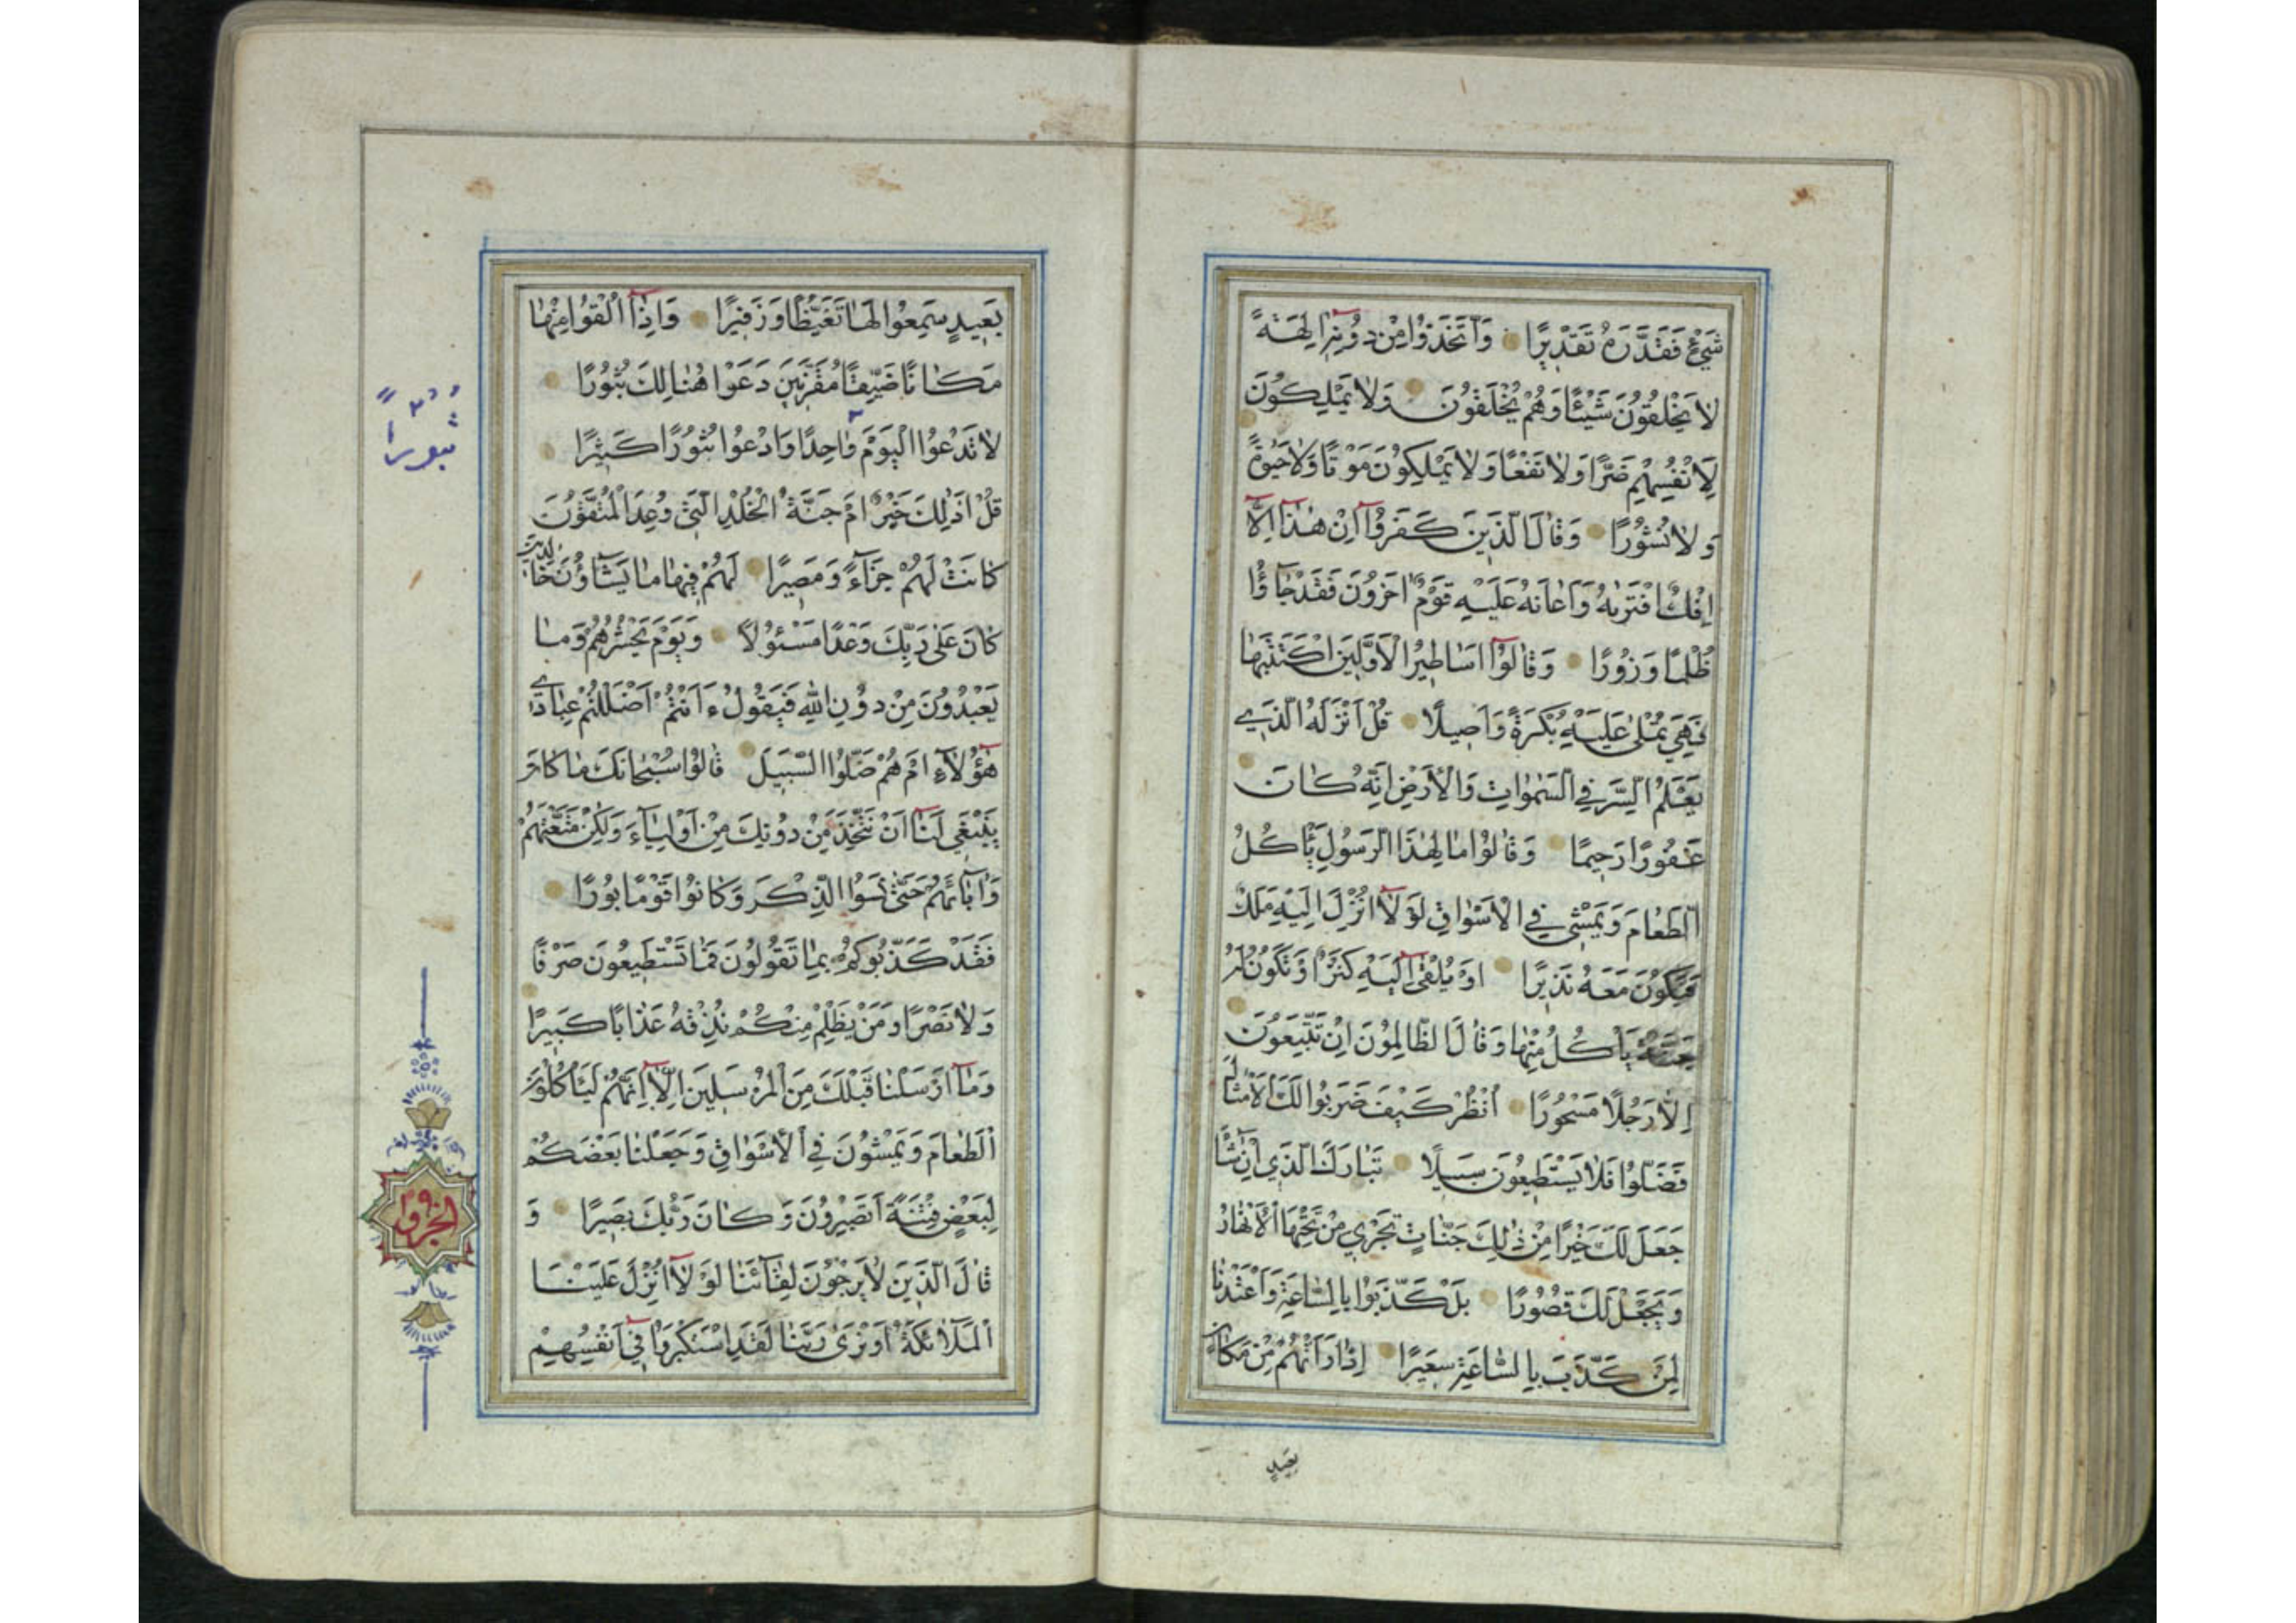 شَيْءٍ فَقَدَّرَهُ تَقْدِيرًا وَاتَّخَذُوا مِنْ دُونِهِ اٰلِهَةً
لَا يَخْلُقُونَ شَيْئًا وَهُمْ يُخْلَقُونَ وَلَا يَمْلِكُونَ
لِاَنْفُسِهِمْ ضَرًّا وَلَا نَفْعًا وَلَا يَمْلِكُونَ مَوْتًا وَلَا حَيٰوةً
وَلَا نُشُورًا وَقَالَ الَّذِينَ كَفَرُوآ اِنْ هٰذَآ اِلَّآ
اِفْكٌ افْتَرٰيهُ وَاَعَانَهُ عَلَيْهِ قَوْمٌ اٰخَرُونَ فَقَدْ جَآؤُا
ظُلْمًا وَزُورًا وَقَالُوآ اَسَاطِيرُ الْاَوَّلِينَ اكْتَتَبَهَا
فَهِيَ تُمْلٰى عَلَيْهِ بُكْرَةً وَاَصِيلًا قُلْ اَنْزَلَهُ الَّذِي
يَعْلَمُ السِّرَّ فِي السَّمٰوَاتِ وَالْاَرْضِ اِنَّهُ كَانَ
غَفُورًا رَحِيمًا وَقَالُوا مَا لِهٰذَا الرَّسُولِ يَأْكُلُ
الطَّعَامَ وَيَمْشِي فِي الْاَسْوَاقِ لَوْلَآ اُنْزِلَ اِلَيْهِ مَلَكٌ
فَيَكُونَ مَعَهُ نَذِيرًا اَوْ يُلْقٰٓى اِلَيْهِ كَنْزٌ اَوْ تَكُونُ لَهُ
جَنَّةٌ يَأْكُلُ مِنْهَا وَقَالَ الظَّالِمُونَ اِنْ تَتَّبِعُونَ
اِلَّا رَجُلًا مَسْحُورًا اُنْظُرْ كَيْفَ ضَرَبُوا لَكَ الْاَمْثَالَ
فَضَلُّوا فَلَا يَسْتَطِيعُونَ سَبِيلًا تَبَارَكَ الَّذِي اِنْ شَآءَ
جَعَلَ لَكَ خَيْرًا مِنْ ذٰلِكَ جَنَّاتٍ تَجْرِي مِنْ تَحْتِهَا الْاَنْهَارُ
وَيَجْعَلْ لَكَ قُصُورًا بَلْ كَذَّبُوا بِالسَّاعَةِ وَاَعْتَدْنَا
لِمَنْ كَذَّبَ بِالسَّاعَةِ سَعِيرًا اِذَا رَاَتْهُمْ مِنْ مَكَانٍ
بَعِيدٍ
بَعِيدٍ سَمِعُوا لَهَا تَغَيُّظًا وَزَفِيرًا وَاِذَآ اُلْقُوا مِنْهَا
مَكَانًا ضَيِّقًا مُقَرَّنِينَ دَعَوْا هُنَالِكَ ثُبُورًا
لَا تَدْعُوا الْيَوْمَ وَاحِدًا وَادْعُوا ثُبُورًا كَثِيرًا
ثُبُورًا
قُلْ اَذٰلِكَ خَيْرٌ اَمْ جَنَّةُ الْخُلْدِ الَّتِي وُعِدَ الْمُتَّقُونَ
كَانَتْ لَهُمْ جَزَآءً وَمَصِيرًا لَهُمْ فِيهَا مَا يَشَآؤُنَ خَالِدِينَ
كَانَ عَلٰى رَبِّكَ وَعْدًا مَسْئُولًا وَيَوْمَ يَحْشُرُهُمْ وَمَا
يَعْبُدُونَ مِنْ دُونِ اللهِ فَيَقُولُ ءَاَنْتُمْ اَضْلَلْتُمْ عِبَادِي
هٰٓؤُلَآءِ اَمْ هُمْ ضَلُّوا السَّبِيلَ قَالُوا سُبْحَانَكَ مَا كَانَ
يَنْبَغِي لَنَآ اَنْ نَتَّخِذَ مِنْ دُونِكَ مِنْ اَوْلِيَآءَ وَلٰكِنْ مَتَّعْتَهُمْ
وَاٰبَآءَهُمْ حَتّٰى نَسُوا الذِّكْرَ وَكَانُوا قَوْمًا بُورًا
فَقَدْ كَذَّبُوكُمْ بِمَا تَقُولُونَ فَمَا تَسْتَطِيعُونَ صَرْفًا
وَلَا نَصْرًا وَمَنْ يَظْلِمْ مِنْكُمْ نُذِقْهُ عَذَابًا كَبِيرًا
وَمَآ اَرْسَلْنَا قَبْلَكَ مِنَ الْمُرْسَلِينَ اِلَّآ اِنَّهُمْ لَيَأْكُلُونَ
الطَّعَامَ وَيَمْشُونَ فِي الْاَسْوَاقِ وَجَعَلْنَا بَعْضَكُمْ
لِبَعْضٍ فِتْنَةً اَتَصْبِرُونَ وَكَانَ رَبُّكَ بَصِيرًا وَ
قَالَ الَّذِينَ لَا يَرْجُونَ لِقَآئَنَا لَوْلَآ اُنْزِلَ عَلَيْنَا
الْمَلَآئِكَةُ اَوْ نَرٰى رَبَّنَا لَقَدِ اسْتَكْبَرُوا فِيٓ اَنْفُسِهِمْ